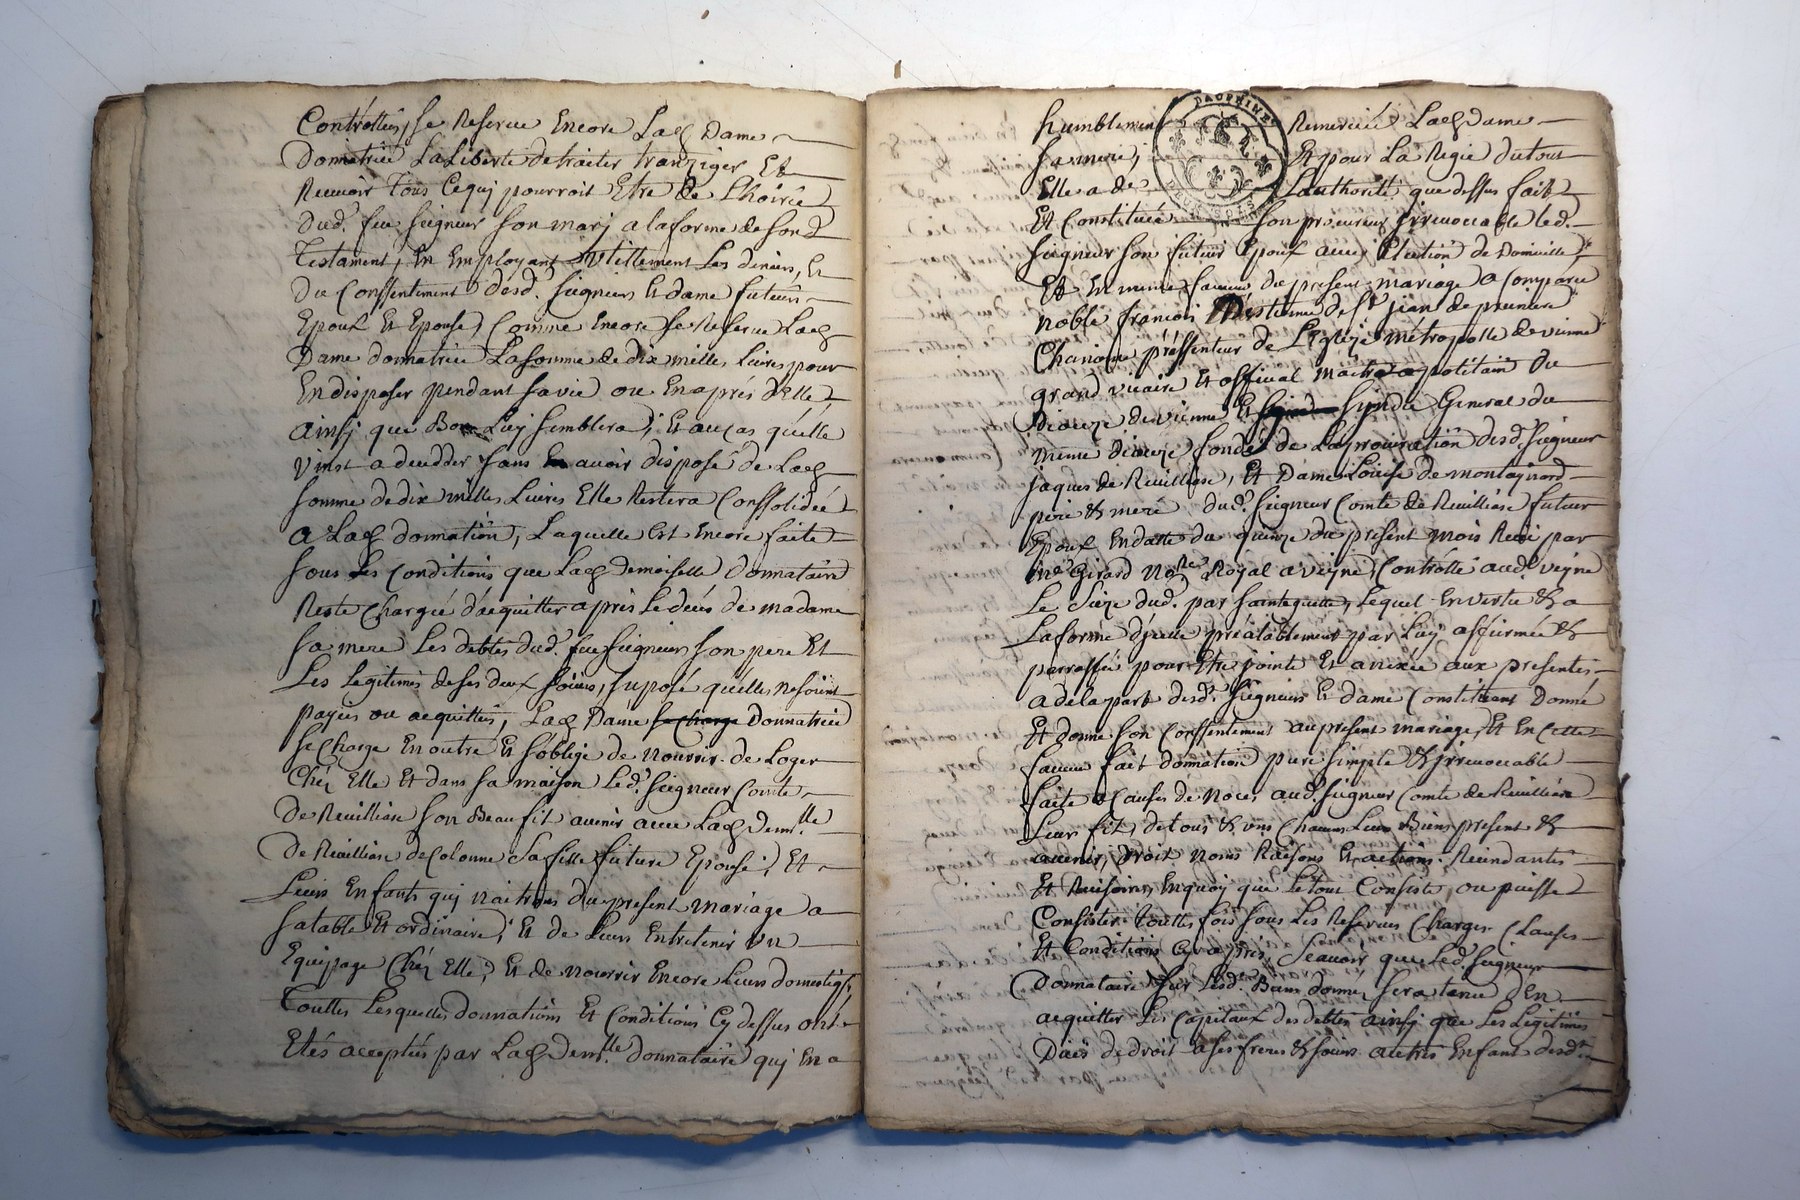 Controllés, se Reserve Encore Lad. Dame
Donnatrice La Liberté de traiter tranziger Et
Recevoir Tous Ce quj pourroit Etre de L'hoirie
Dud. feu seigneur son marj a la forme de son d.
Testament, En Employant Utillement Les deniers, Et
Du Conssentement desd. seigneur Et dame futeurs
Epoux Et Epouse, Comme Encore se Reserve Lad.
Dame donnatrice La somme de dix milles Livres pour
En disposer pendant sa vie ou En aprés d'elle
ainsj que Bon Luy semblera, Et au cas qu'elle
vint a deceder sans En avoir disposé de Lad.
somme de dix milles Livres Elle Restera Conssolidée
a Lad. donnation, Laquelle Est Encore faite
sous Les Conditions que Lad. demoiselle donnataire
Reste Chargée d'acquitter apris Le déces de madame
sa mere Les debtes dud. feu seigneur son pere Et
Les Legitimes de ses deux soeurs, suposé quelles ne soint
payées ou acquittées, Lad. Dame se charge Donnatrice
se Charge En outre Et s'oblige de nourrir de Loger
Chéz Elle Et dans sa maison Led. seigneur Comte
De Revilliase son Beau fil avenir avec Lad. demlle
De Revilliase de Colonne sa fille future Epouse, Et
Leurs Enfants quj naitrons du present mariage a
sa table Et ordinaire, Et de Leurs Entretenir un
Equipage Chéz Elle, Et de nourrir Encore Leurs domestiqs,
Touttes Lesquelles donnations Et Conditions Cy dessus ont
Etés acceptées par Lad. demlle donnataire quj En a
humblement Remercié Lad. dame
sa mere, Et pour La Regie du tout
Elle a de Lauthorité que dessus fait
Et Constitué son procureur jrrevocable led.
seigneur son futeur Epoux avec Election de Domicille,
Et En meme faveur du present mariage a Comparu
noble francois de St jean de prunieres
Chanoine préssenteur de L'Eglize métropolle de vienne
grand vicaire Et official du
Dioceze de vienne Et sindic General du
meme dioceze fondé de La procuration desd. seigneur
jaques de Revilliase, Et Dame Loüise de montaÿnard
pere & mere dud. seigneur Comte de Revilliase futeur
Epoux En datte du quinze du présent mois Recu par
me Girard Nore Royal a veÿne, Controllé aud. veÿne
Le seize dud. par sauttequitte, Lequel En vertu & a
La forme d'jcelle préalablement par Luy affirmée &
parraffée pour Etre jointe Et anexée aux presentes
a de la part desd. seigneur Et dame Constituant Donné
Et donne son Conssentement au present mariage, Et En Cette
faveur fait donnation pure simple & jrrevocable
faite a Causes de noces aud. seigneur Comte de Revilliase
Leur fil, de tous & uns Chacuns Leurs Biens present &
avenir, droit noms Raisons Et actions Recindantes
Et Recisoires En quoj que Le tout Consiste, ou puisse
Consister Touttes fois sous Les Reserves Charges Clauses
Et Conditions Cy apres, Scavoir que Led. seigneur
Donnataire sur Lesd. Biens donnés sera tenu d'En
acquitter Les Capitaux des debtes ainsj que Les Legitimes
Düés de droit a ses freres & soeurs autres Enfant desd.
DAUPHINE